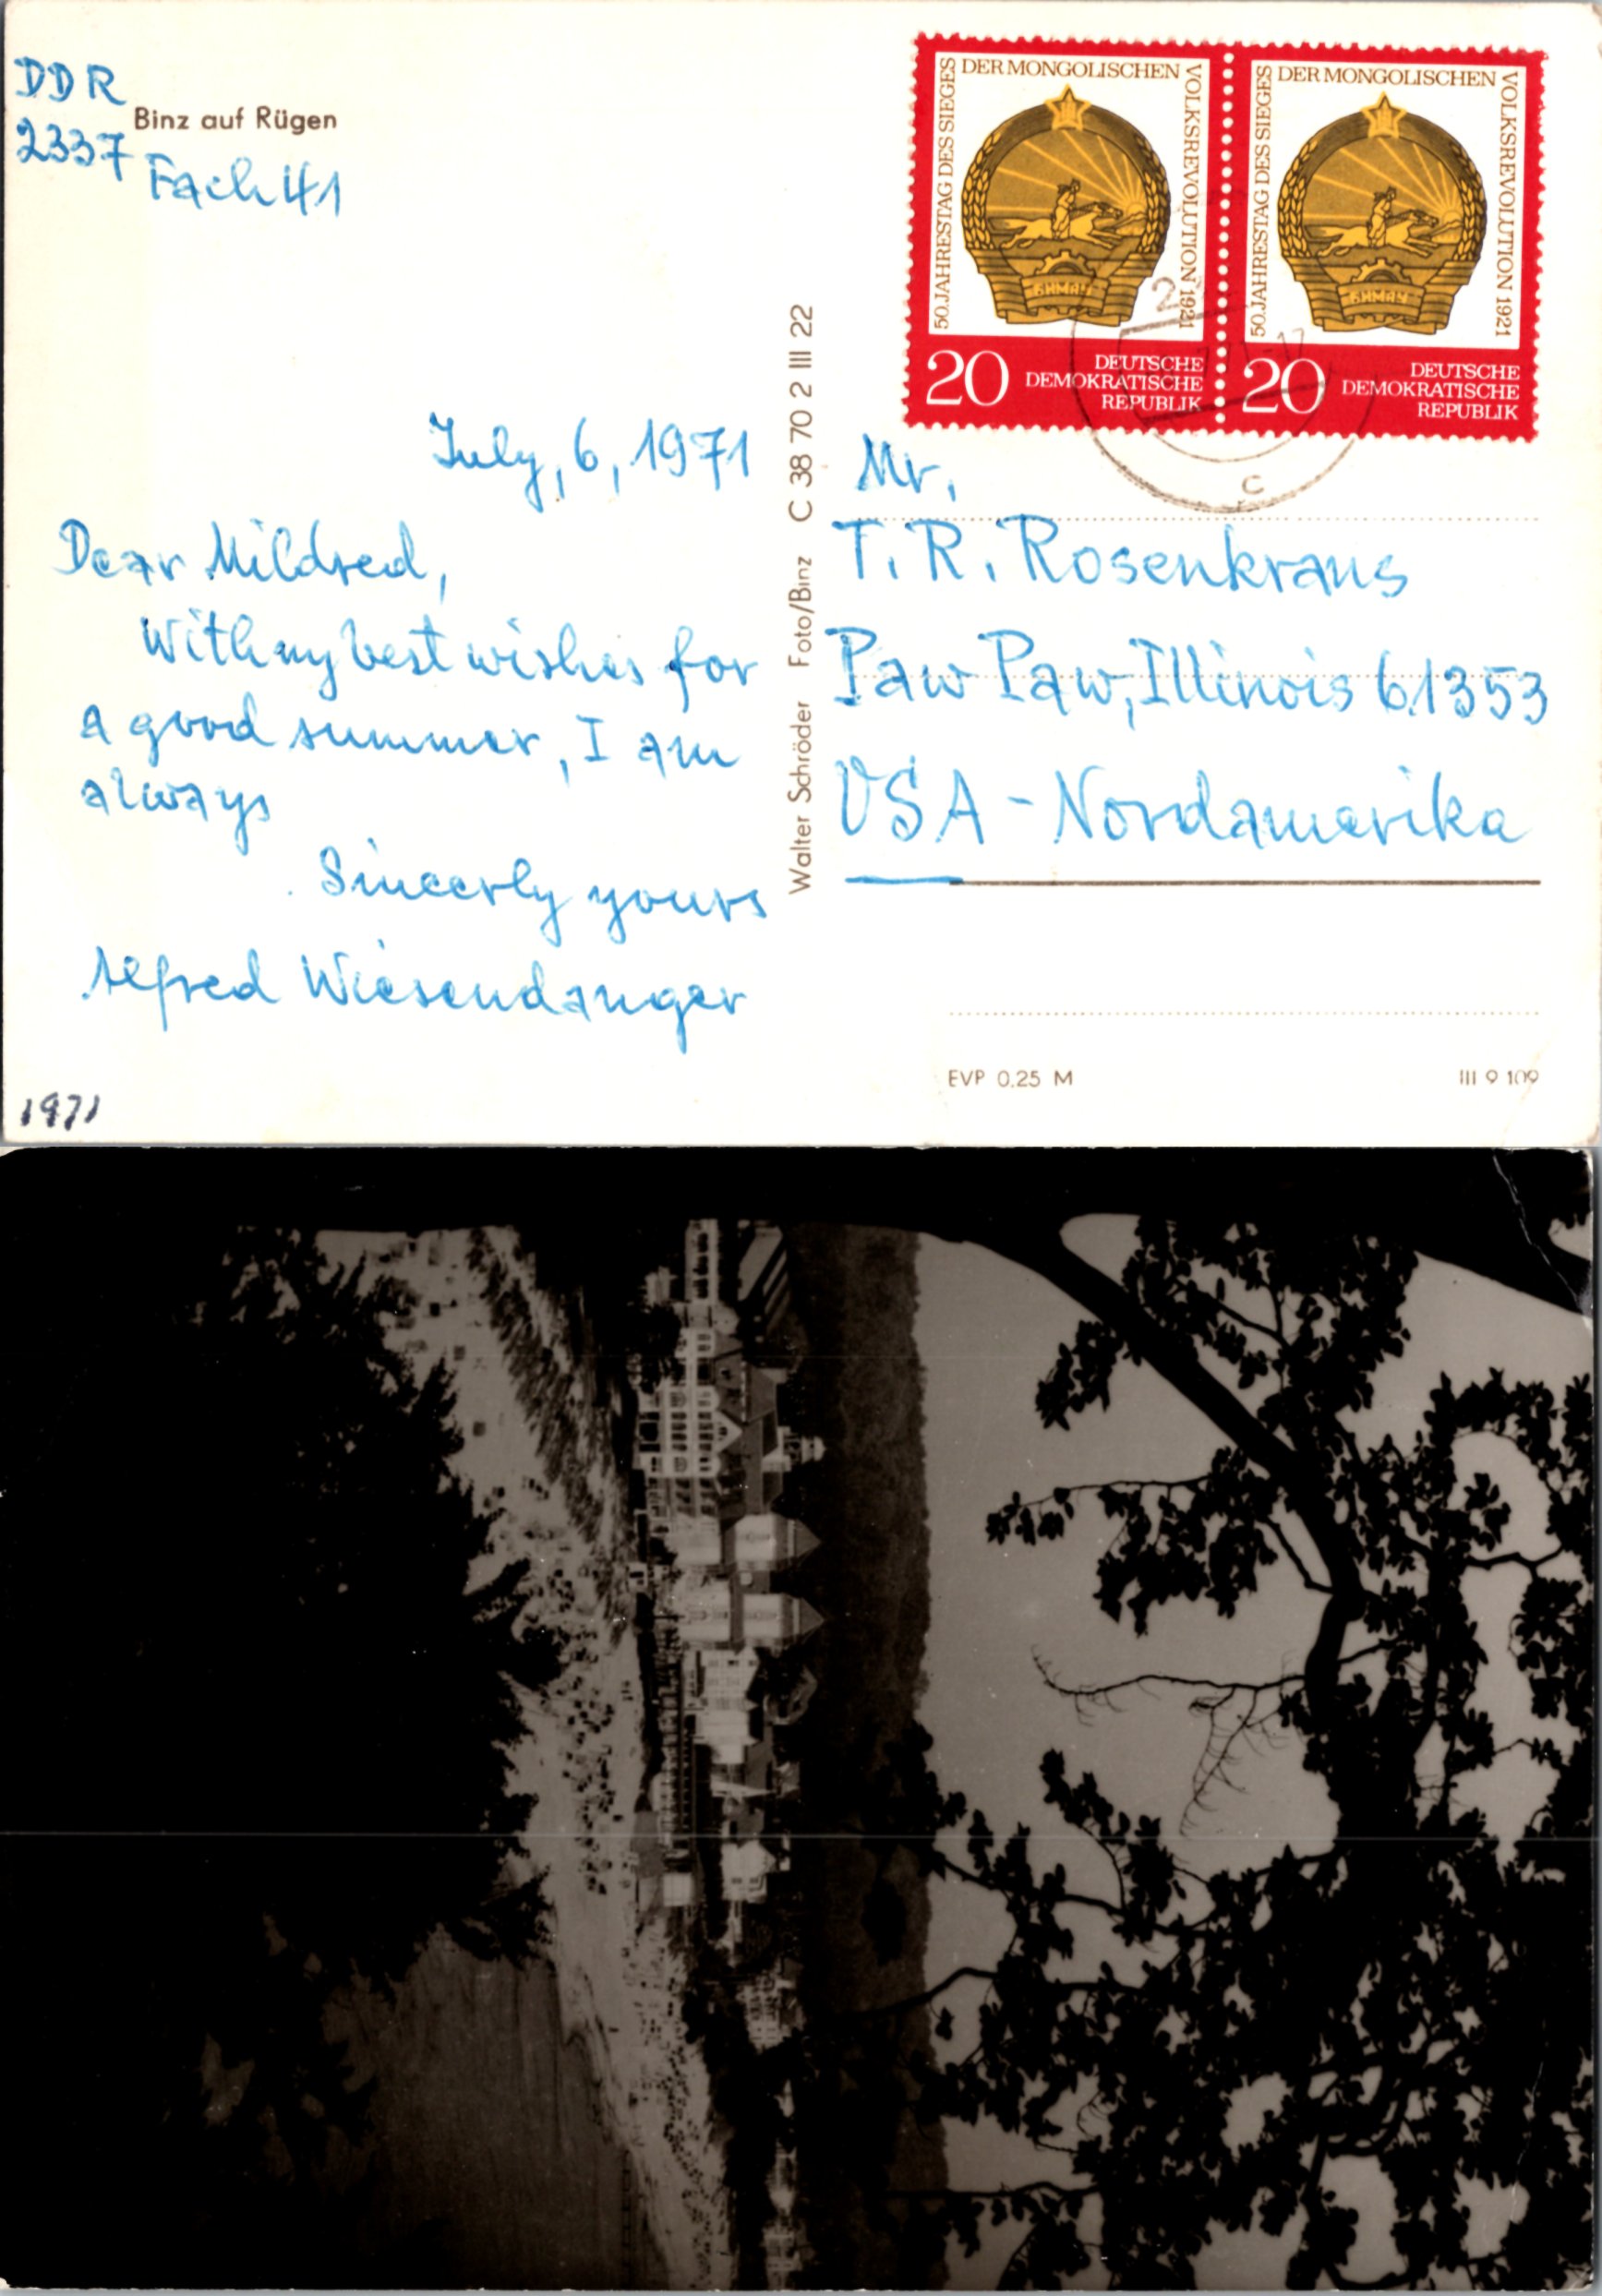 DDR
2337
Binz auf Rügen
Fach 41
50. JAHRESTAG DES SIEGES DER MONGOLISCHEN VOLKSREVOLUTION 1921
20 DEUTSCHE
DEMOKRATISCHE
REPUBLIK
50. JAHRESTAG DES SIEGES DER MONGOLISCHEN VOLKSREVOLUTION 1921
20 DEUTSCHE
DEMOKRATISCHE
REPUBLIK
БНМАУ
БНМАУ
c
July, 6, 1971
Dear Mildred,
With my best wishes for
a good summer, I am
always
Sincerly yours
Alfred Wiesendanger
1971
Walter Schröder Foto/Binz C 38 70 2 III 22
Mr.
T. R. Rosenkrans
Paw Paw, Illinois 61353
USA - Nordamerika
EVP 0,25 M
III 9 109